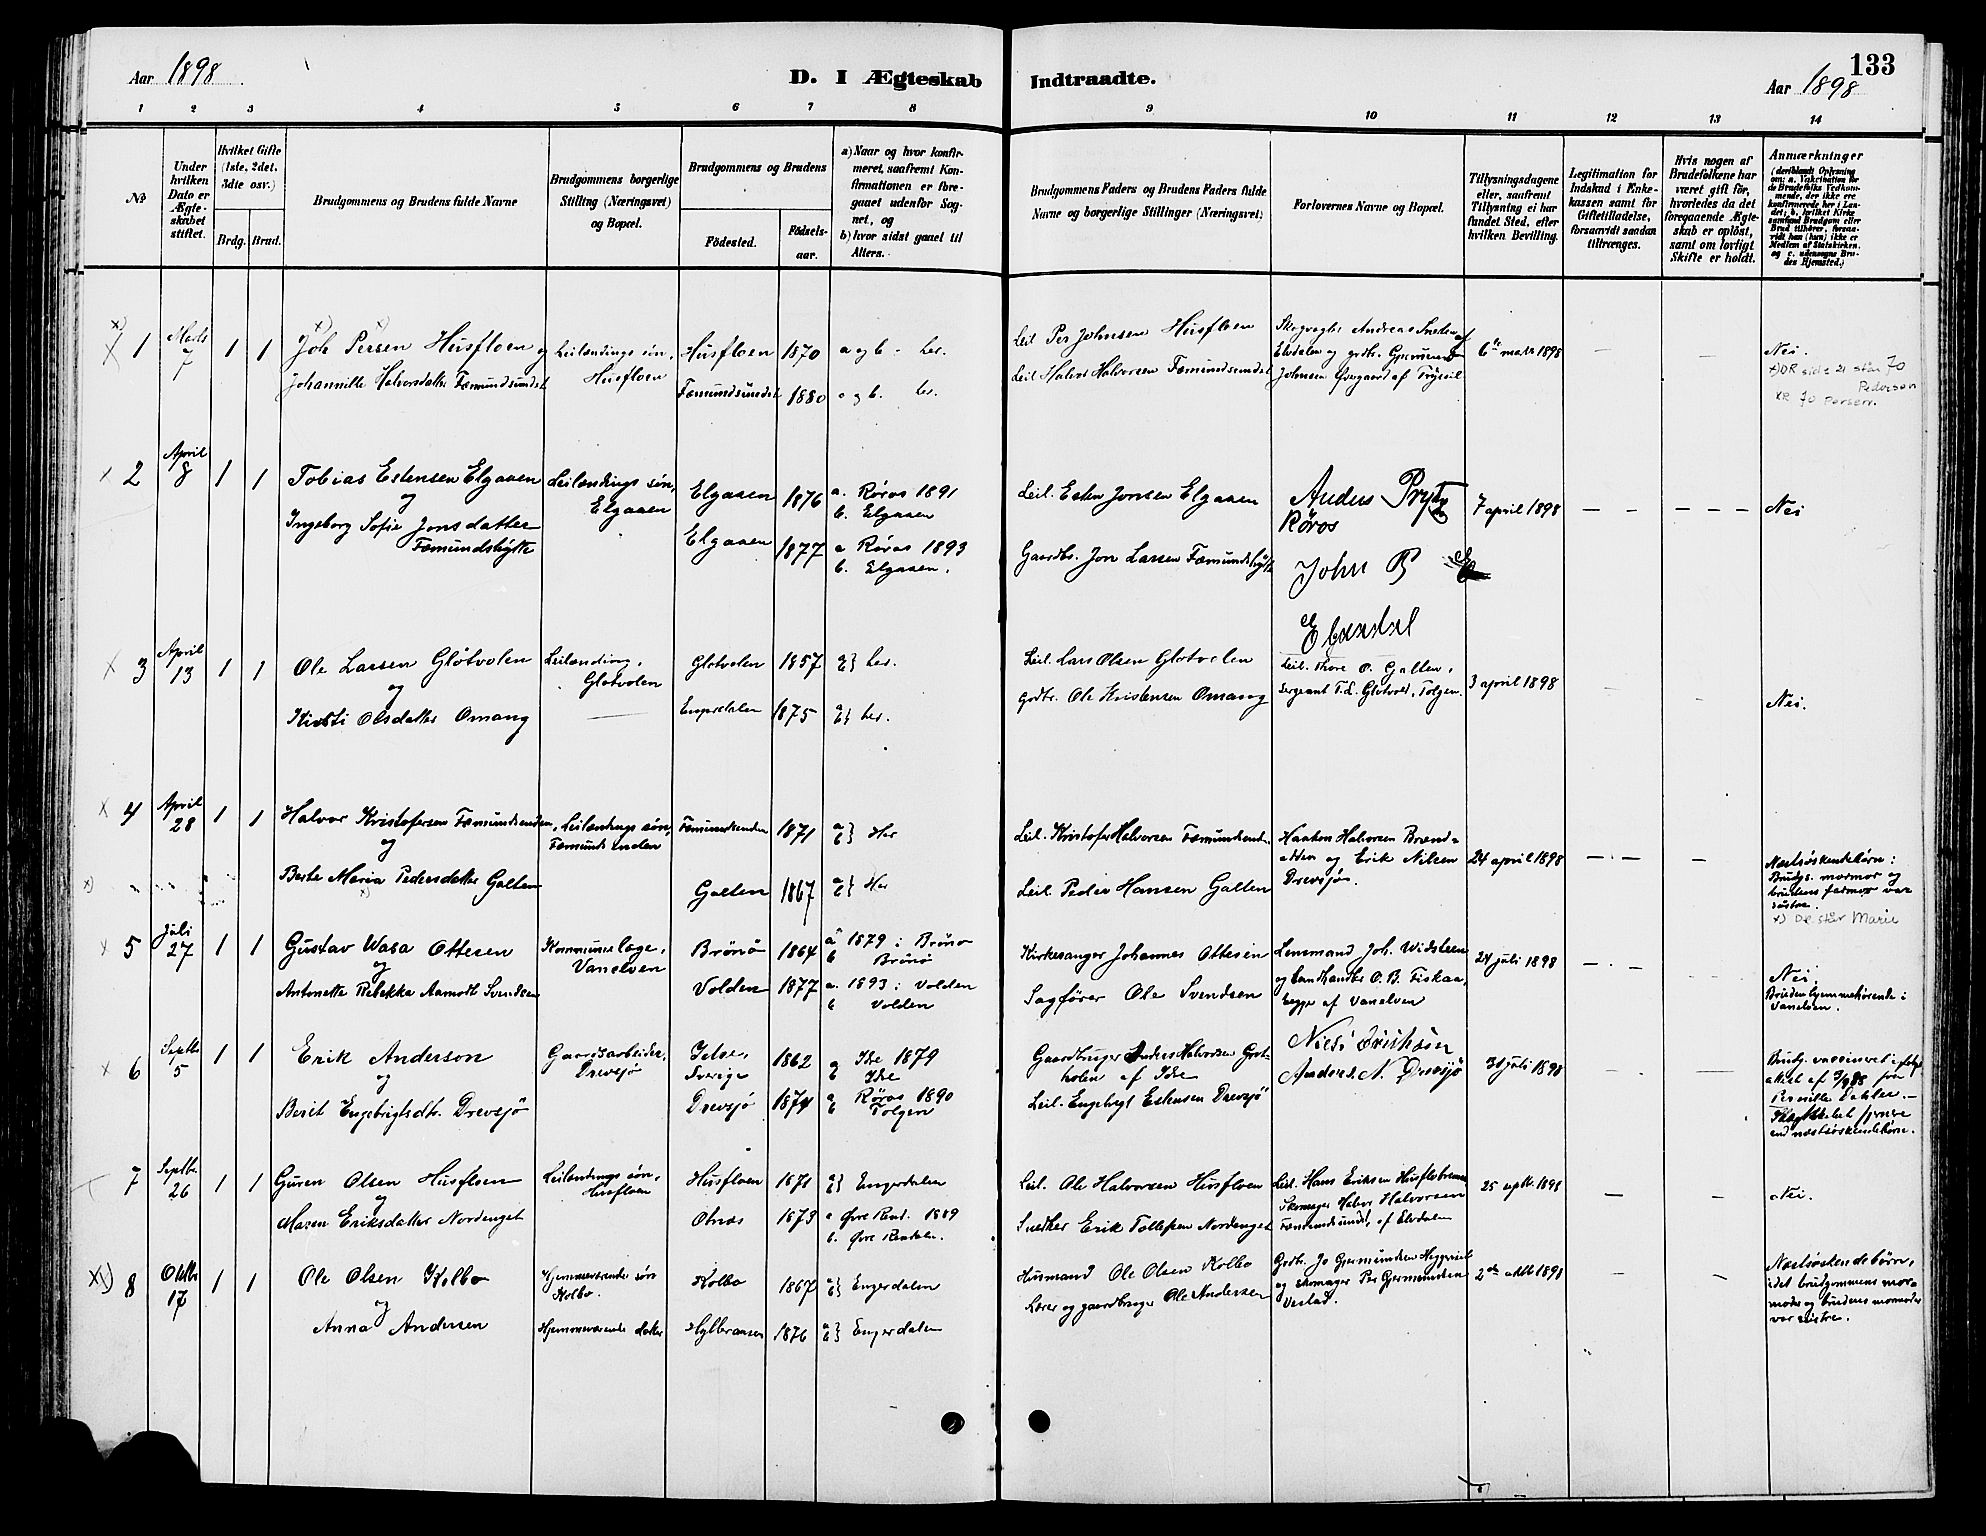 Aar 1898
D. I Ægteskab Indtraadte.
133
Aar 1898
1 2 3 4 5 6 7 8 9 10 11 12 13 14
№
Under hvilken Dato er Ægteskabet stiftet.
Hvilket Gifte (1ste, 2det, 3dte osv.)
Brdg. Brud.
Brudgommens og Brudens fulde Navne
Brudgommens borgerlige Stilling (Næringsvei) og Bopæl.
Brudgommens og Brudens
Fødested. Fødselsaar.
a) Naar og hvor konfirmeret, saafremt Konfirmationen er foregaaet udenfor Sognet, og
b) hvor sidst gaaet til Alters.
Brudgommens Faders og Brudens Faders fulde Navne og borgerlige Stillinger (Næringsvei)
Forlovernes Navne og Bopæl.
Tillysningsdagene eller, saafremt Tillysning ei har fundet Sted, efter hvilken Bevilling.
Legitimation for Indskud i Enkekassen samt for Giftetilladelse, forsaavidt saadan tiltrænges.
Hvis nogen af Brudefolkene har været gift før, hvorledes da det foregaaende Ægteskab er opløst, samt om lovligt Skifte er holdt.
Anmærkninger (deriblandt Oplysning om: a. Vakcination for de Brudefolks Vedkommende, der ikke ere konfirmerede her i Landet; b. hvilket Kirkesamfund Brudgom eller Brud tilhører, forsaavidt han (hun) ikke er Medlem af Statskirken, og c. udensogns Brudes Hjemsted.)
1 Marts 7 1 1 Joh Persen Husfloen og Leilændings søn, Husfloen Husfloen 1870 a og b. her. Leil Per Johnsen Husfloen Skogvogter Andreas Sneten af 6te mars 1898 Nei.
Johannille Halvorsdatter Fæmundsundet Fæmundsundet 1880 a og b. her. Leil Halvor Halvorsen Fæmundsundet Elvdalen og grdbr. Gjermund Johnsen Øvergaard af Trysil
x) DR side 21 står Jo Pederson
KR Jo Persen.
2 April 8 1 1 Tobias Estensen Elgaaen Leilændings søn, Elgaaen Elgaaen 1876 a. Røros 1891 b. Elgaaen Leil. Esten Jonsen Elgaaen Anders Prytz Røros 7 april 1898 Nei
og
Ingeborg Sofie Jonsdatter Fæmundshytte Elgaaen 1877 a Røros 1893 b. Elgaaen. Gaardbr. Jon Larsen Fæmundshytte John B Elvedal
3 April 13 1 1 Ole Larsen Gløtvolen Leilænding, Gløtvolen Gløtvolen 1857 a b} her. Leil. Lars Olsen Gløtvolen Leil. Thore O. Galten, 3 april 1898 Nei.
og
Kirsti Olsdatter Omang Engerdalen 1875 a b} her. grdbr. Ole Kristensen Omang Sergeant T. L. Gløtvold, Tolgen.
4 April 28 1 1 Halvor Kristofersen Fæmundsenden, Leilændings søn, Fæmundsenden Fæmundsenden 1871 a b} Her Leil. Kristofer Halvorsen Fæmundsend. Haaken Halvorsen 24 april 1898
og
Berte Maria Pedersdatter Galten Galten 1867 a b} Her Leil. Peder Hansen Galten og Erik Nilsen Drevsjø.
Næstsøskendebørn: Brudgs. mormor og brudens farmor var søstre.
x) DR står Marie
5 Juli 27 1 1 Gustav Wasa Ottesen Kommunelæge, Vanelven Brønø 1864 a 1879 i Brønø b Brønø Kirkesanger Johannes Ottesen Lensmand Joh. Widsteen 24 juli 1898 Nei.
og
Antonette Rebekka Aamodt Svendsen Volden 1877 a. 1893 i Volden b Volden Sagfører Ole Svendsen og Landhandler O. B. Fiskaa, begge af Vanelven
Bruden hjemmehørende i Vanelven.
6 Septbr 5 1 1 Erik Anderson Gaardsarbeider, Drevsjø Idre, Sverige 1862 a Idre 1879 b Idre Gaardbruger Anders Halvorsen af Idre Niels Erichsen 31 juli 1898
og
Berit Engebrigtsdtr. Drevsjø Drevsjø 1874 a Røros 1890 b Tolgen Leil. Engebrigt Estensen Drevsjø Anders N. Drevsjø
Brudg. vaccineret ifølge attest af
Slægtskabet fjernere end næstsøskendebørn.
7 Septbr. 26 1 1 Guren Olsen Husfloen Leilændings søn, Husfloen Husfloen 1871 a b} Engerdalen Leil. Ole Halvorsen Husfloen Leil. Hans Eriksen 25 septb. 1898 Nei.
og
Maren Eriksdatter Nordenget Otnæs 1873 a Øvre Rend. 1889 b. Øvre Rendalen. Snedker Erik Tollefsen Nordenget Skomager Halvor Halvorsen Fæmundsundet, af Elvdalen
8 Oktbr 17 1 1 Ole Olsen Kolbo Hjemmeværende søn Kolbo. Kolbo 1867 a b} Engerdalen Husmand Ole Olsen Kolbo Grdbr. Jo Gjermundsen Heggeriset 2den oktb 1898
og
Anna Andersen Hjemmeværende datter Hylleraasen 1876 a b} Engerdalen Lærer og gaardbruger Ole Andersen og skomager Per Gjermundsen Vestad.
Næstsøskendebørn, idet brudgommens mormoder og brudens mormoder var søstre.